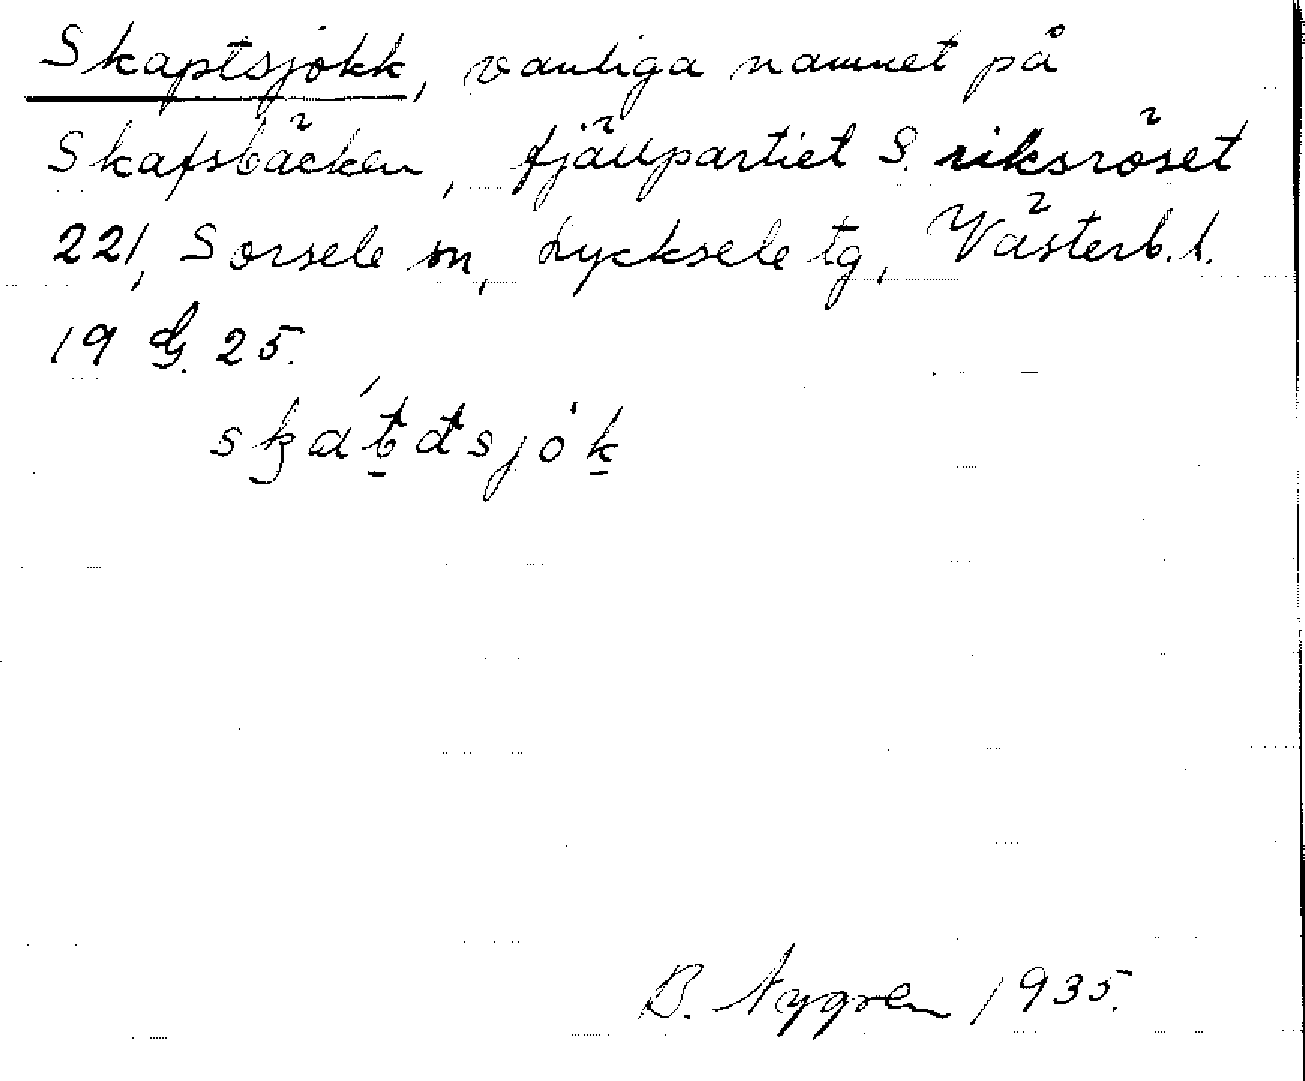 Skaptsjökk, vanliga namnet på
Skafsbäcken, fjällpartiet S. riksröset
221, Sorsele sn, Lycksele tg, Västerb. l.
19 G. 25.
B. Nygren 1935.